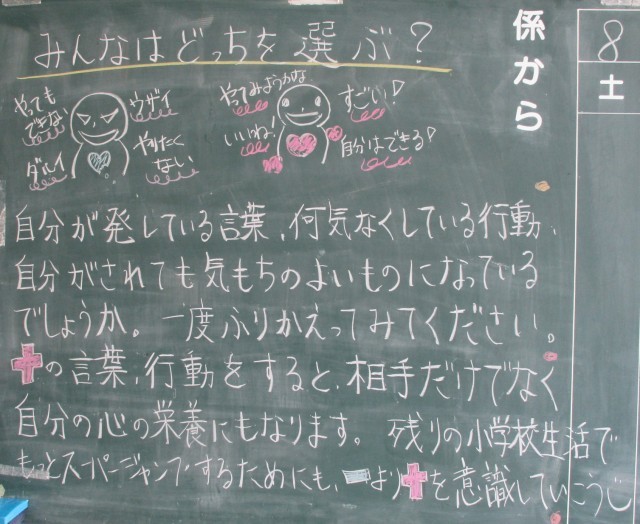 みんなはどっちを選ぶ？
係から
8
土
やっても
できない
ウザイ
ダルイ
やりたく
ない
やってみようかな
すごい！
いいね！
自分はできる！
自分が発している言葉、何気なくしている行動、
自分がされても気もちのよいものになっている
でしょうか。一度ふりかえってみてください。
＋の言葉、行動をすると、相手だけでなく
自分の心の栄養にもなります。残りの小学校生活で
もっとスーパージャンプするためにも、－より＋を意識していこう